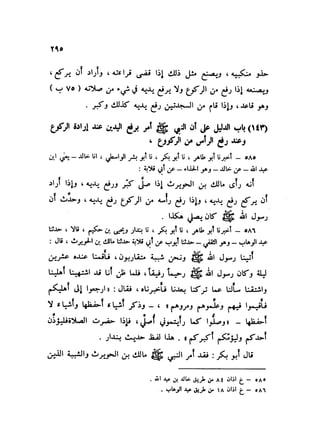 ٢٩٥
حذو منكبيه ، ويصنع مثل ذلك إذا قضى قراءته ، وأراد أن يركع ،
ويصنعه إذا رفع من الركوع ولا يرفع يديه في شيء من صلاته ( ٧٥ ب )
وهو قاعد ، وإذا قام من السجدتين رفع يديه كذلك وكبر .
(١٤٣) باب الدليل على أن النبي ﷺ أمر برفع اليدين عند إرادة الركوع
وعند رفع الرأس من الركوع .
٥٨٥ — أنا أبو طاهر ، نا أبو بكر ، نا أبو بشر الواسطي ، أنا خالد — يعني ابن
عبد الله — عن خالد — وهو الحذاء — عن أبي قلابة :
أنه رأى مالك بن الحويرث إذا صلى كبر ورفع يديه ، وإذا أراد
أن يركع رفع يديه ، وإذا رفع رأسه من الركوع رفع يديه ، وحدث أن
رسول الله ﷺ كان يصلي هكذا .
٥٨٦ — أنا أبو طاهر ، نا أبو بكر ، نا بندار ويحيى بن حكيم ، قالا ، حدثنا
عبد الوهاب — وهو الثقفي — حدثنا أيوب عن أبي قلابة حدثنا مالك بن الحويرث ، قال :
أتينا رسول الله ﷺ ونحن شببة متقاربون ، فأقمنا عنده عشرين
ليلة وكان رسول الله ﷺ رحيما رفيقا ، فلما ظن أنا قد اشتهينا أهلينا
واشتقنا سألنا عما تركنا بعدنا فأخبرناه ، فقال : « ارجعوا إلى أهليكم
فأقيموا فيهم وعلموهم ومروهم » ، — وذكر أشياء أحفظها وأشياء لا
أحفظها — « وصلوا كما رأيتموني أصلي ، فإذا حضرت الصلاة فليؤذن
أحدكم وليؤمكم أكبركم » . هذا لفظ حديث بندار .
قال أبو بكر : فقد أمر النبي ﷺ مالك بن الحويرث والشببة الذين
٥٨٥ — خ أذان ٨٤ من طريق خالد بن عبد الله .
٥٨٦ — خ أذان ١٨ من طريق عبد الوهاب .